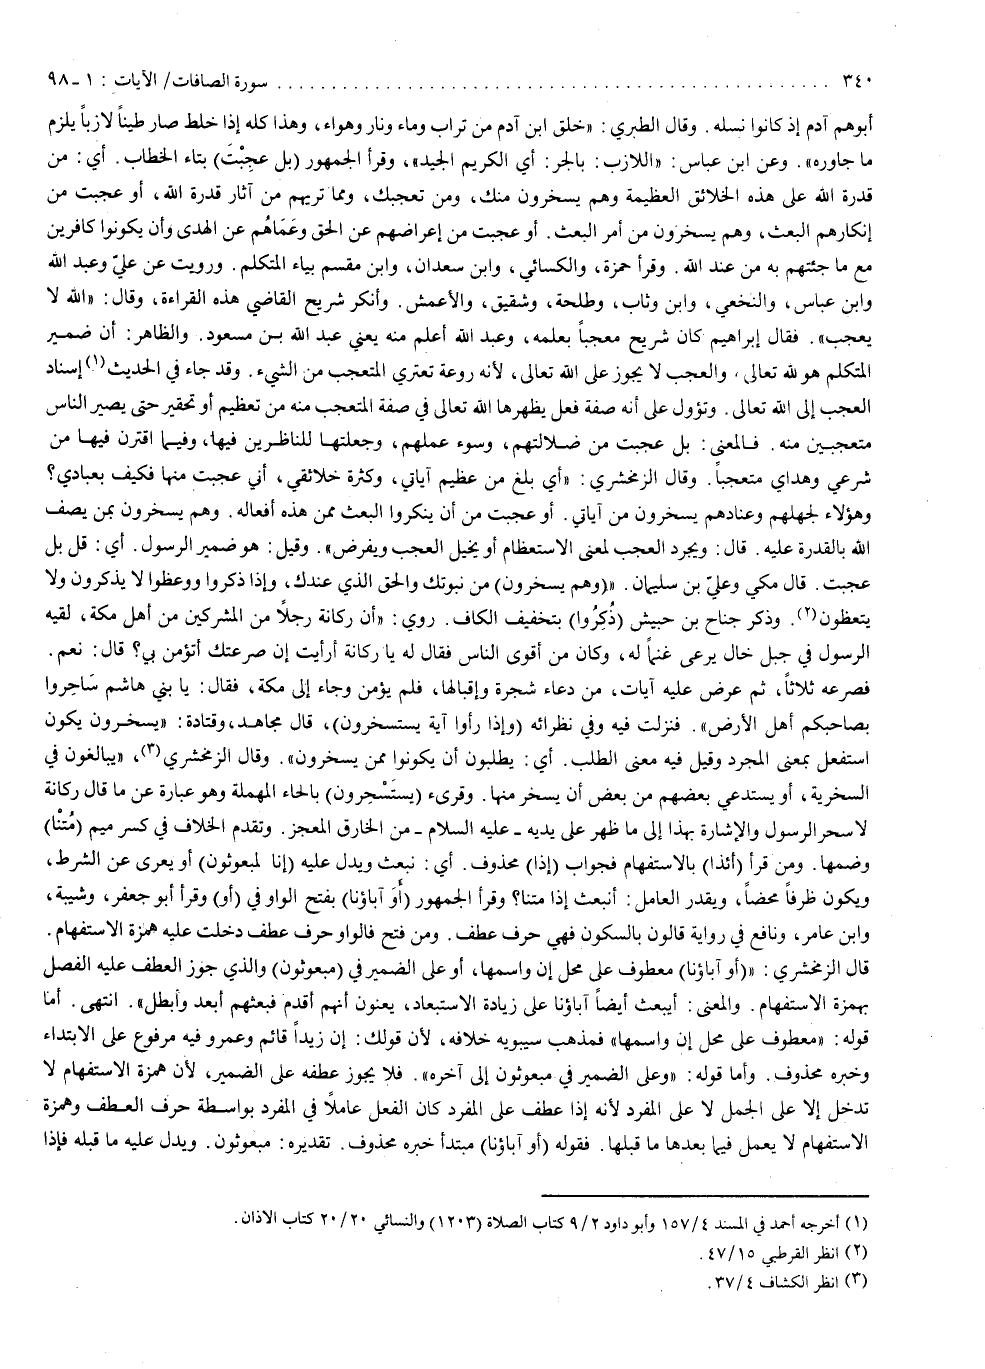 ٣٤٠ ........................................ سورة الصافات/ الآيات : ١ ـ ٩٨
أبوهم آدم إذ كانوا نسله. وقال الطبري : «خلق ابن آدم من تراب وماء ونار وهواء، وهذا كله إذا خلط صار طيناً لازباً يلزم
ما جاوره». وعن ابن عباس : «اللازب : بالجر : أي الكريم الجيد»، وقرأ الجمهور (بل عجِبْتَ) بتاء الخطاب. أي : من
قدرة الله على هذه الخلائق العظيمة وهم يسخرون منك، ومن تعجبك، ومما تريهم من آثار قدرة الله، أو عجبت من
إنكارهم البعث، وهم يسخرون من أمر البعث. أو عجبت من إعراضهم عن الحق وعَمَاهُم عن الهدى وأن يكونوا كافرين
مع ما جئتهم به من عند الله. وقرأ حمزة، والكسائي، وابن سعدان، وابن مقسم بياء المتكلم. ورويت عن عليّ وعبد الله
وابن عباس، والنخعي، وابن وثاب، وطلحة، وشقيق، والأعمش. وأنكر شريح القاضي هذه القراءة، وقال : «الله لا
يعجب». فقال إبراهيم كان شريح معجباً بعلمه، وعبد الله أعلم منه يعني عبد الله بـن مسعود. والظاهر : أن ضمير
المتكلم هو لله تعالى، والعجب لا يجوز على الله تعالى، لأنه روعة تعتري المتعجب من الشيء. وقد جاء في الحديث(١) إسناد
العجب إلى الله تعالى. وتؤول على أنه صفة فعل يظهرها الله تعالى في صفة المتعجب منه من تعظيم أو تحقير حتى يصير الناس
متعجبين منه. فـالمعنى : بل عجبت من ضـلالتهم، وسوء عملهم، وجعلتهـا للناظـرين فيها، وفيـما اقترن فيهـا من
شرعي وهداي متعجباً. وقال الزمخشري : «أي بلغ من عظيم آياتي، وكثرة خلائقي، أني عجبت منها فكيف بعبادي؟
وهؤلاء لجهلهم وعنادهم يسخرون من آياتي. أو عجبت من أن ينكروا البعث ممن هذه أفعاله. وهم يسخرون بمن يصف
الله بالقدرة عليه. قال : ويجرد العجب لمعنى الاستعظام أو يخيل العجب ويفرض». وقيل : هو ضمير الرسول. أي : قل بل
عجبت. قال مكي وعليّ بن سليمان. «(وهم يسخرون) من نبوتك والحق الذي عندك، وإذا ذكروا ووعظوا لا يذكرون ولا
يتعظون(٢). وذكر جناح بن حبيش (ذُكِرُوا) بتخفيف الكاف. روي : «أن ركانة رجلاً من المشركين من أهل مكة، لقيه
الرسول في جبل خال يرعى غنماً له، وكان من أقوى الناس فقال له يا ركانة أرأيت إن صرعتك أتؤمن بي؟ قال : نعم.
فصرعه ثلاثاً، ثم عرض عليه آيات، من دعاء شجرة وإقبالها، فلم يؤمن وجاء إلى مكة، فقال : يا بني هاشم سَاحِروا
بصاحبكم أهل الأرض». فنزلت فيه وفي نظرائه (وإذا رأوا آية يستسخرون)، قال مجاهد، وقتادة : «يسخـرون يكون
استفعل بمعنى المجرد وقيل فيه معنى الطلب. أي : يطلبون أن يكونوا ممن يسخرون». وقال الزمخشري(٣)، «يبالغون في
السخرية، أو يستدعي بعضهم من بعض أن يسخر منها. وقرىء (يستَسْحِرون) بالحاء المهملة وهو عبارة عن ما قال ركانة
لاسحر الرسول والإشارة بهذا إلى ما ظهر على يديه ـ عليه السلام ـ من الخارق المعجز. وتقدم الخلاف في كسر ميم (مُتنْا)
وضمها. ومن قرأ (أئذا) بالاستفهام فجواب (إذا) محذوف. أي : نبعث ويدل عليه (إنا لمبعوثون) أو يعرى عن الشرط،
ويكون ظرفاً محضاً، ويقدر العامل : أنبعث إذا متنا؟ وقرأ الجمهور (أَوَ آباؤنا) بفتح الواو في (أو) وقرأ أبو جعفر، وشيبة،
وابن عامر، ونافع في رواية قالون بالسكون فهي حرف عطف. ومن فتح فالواو حرف عطف دخلت عليه همزة الاستفهام.
قال الزمخشري : «(أو آباؤنا) معطوف على محل إن واسمها، أو على الضمير في (مبعوثون) والذي جوز العطف عليه الفصل
بهمزة الاستفهام. والمعنى : أيبعث أيضاً آباؤنا على زيادة الاستبعاد، يعنون أنهم أقدم فبعثهم أبعد وأبطل». انتهى. أما
قوله : «معطوف على محل إن واسمها» فمذهب سيبويه خلافه، لأن قولك : إن زيداً قائم وعمرو فيه مرفوع على الابتداء
وخبره محذوف. وأما قوله : «وعلى الضمير في مبعوثون إلى آخره». فلا يجوز عطفه على الضمير، لأن همزة الاستفهام لا
تدخل إلا على الجمل لا على المفرد لأنه إذا عطف على المفرد كان الفعل عاملاً في المفرد بواسطة حرف العـطف وهمزة
الاستفهام لا يعمل فيما بعدها ما قبلها. فقوله (أو آباؤنا) مبتدأ خبره محذوف. تقديره : مبعوثون. ويدل عليه ما قبله فإذا
(١) أخرجه أحمد في المسند ١٥٧/٤ وأبو داود ٩/٢ كتاب الصلاة (١٢٠٣) والنسائي ٢٠/٢٠ كتاب الاذان.
(٢) انظر القرطبي ٤٧/١٥.
(٣) انظر الكشاف ٣٧/٤.